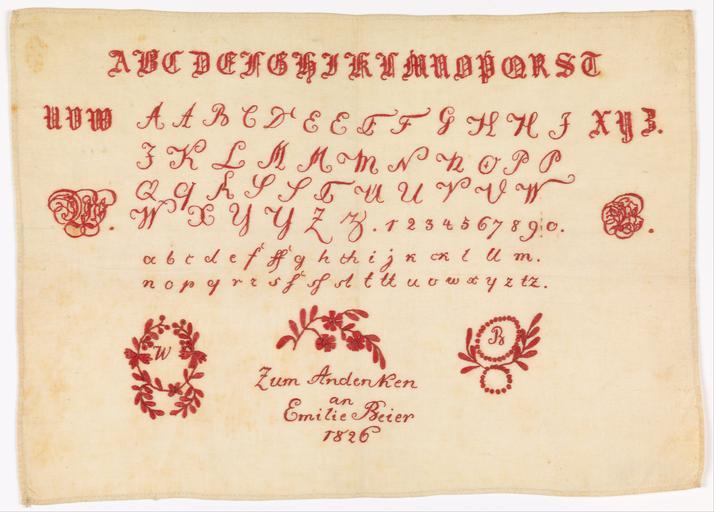 A B C D E F G H I K L M N O P Q R S T
U V W
A A B C D E E F F G H H I
X Y Z.
J K L M M M N N O P P
Q q R S S T U U V V W
W X Y Y Z Z. 1 2 3 4 5 6 7 8 9 0.
a b c d e f ff g h ch i j k ck l ll m.
n o p q r z s ſ ſſ ſt t tt u v w x y z tz.
W
B
Zum Andenken
an
Emilie Beier
1826